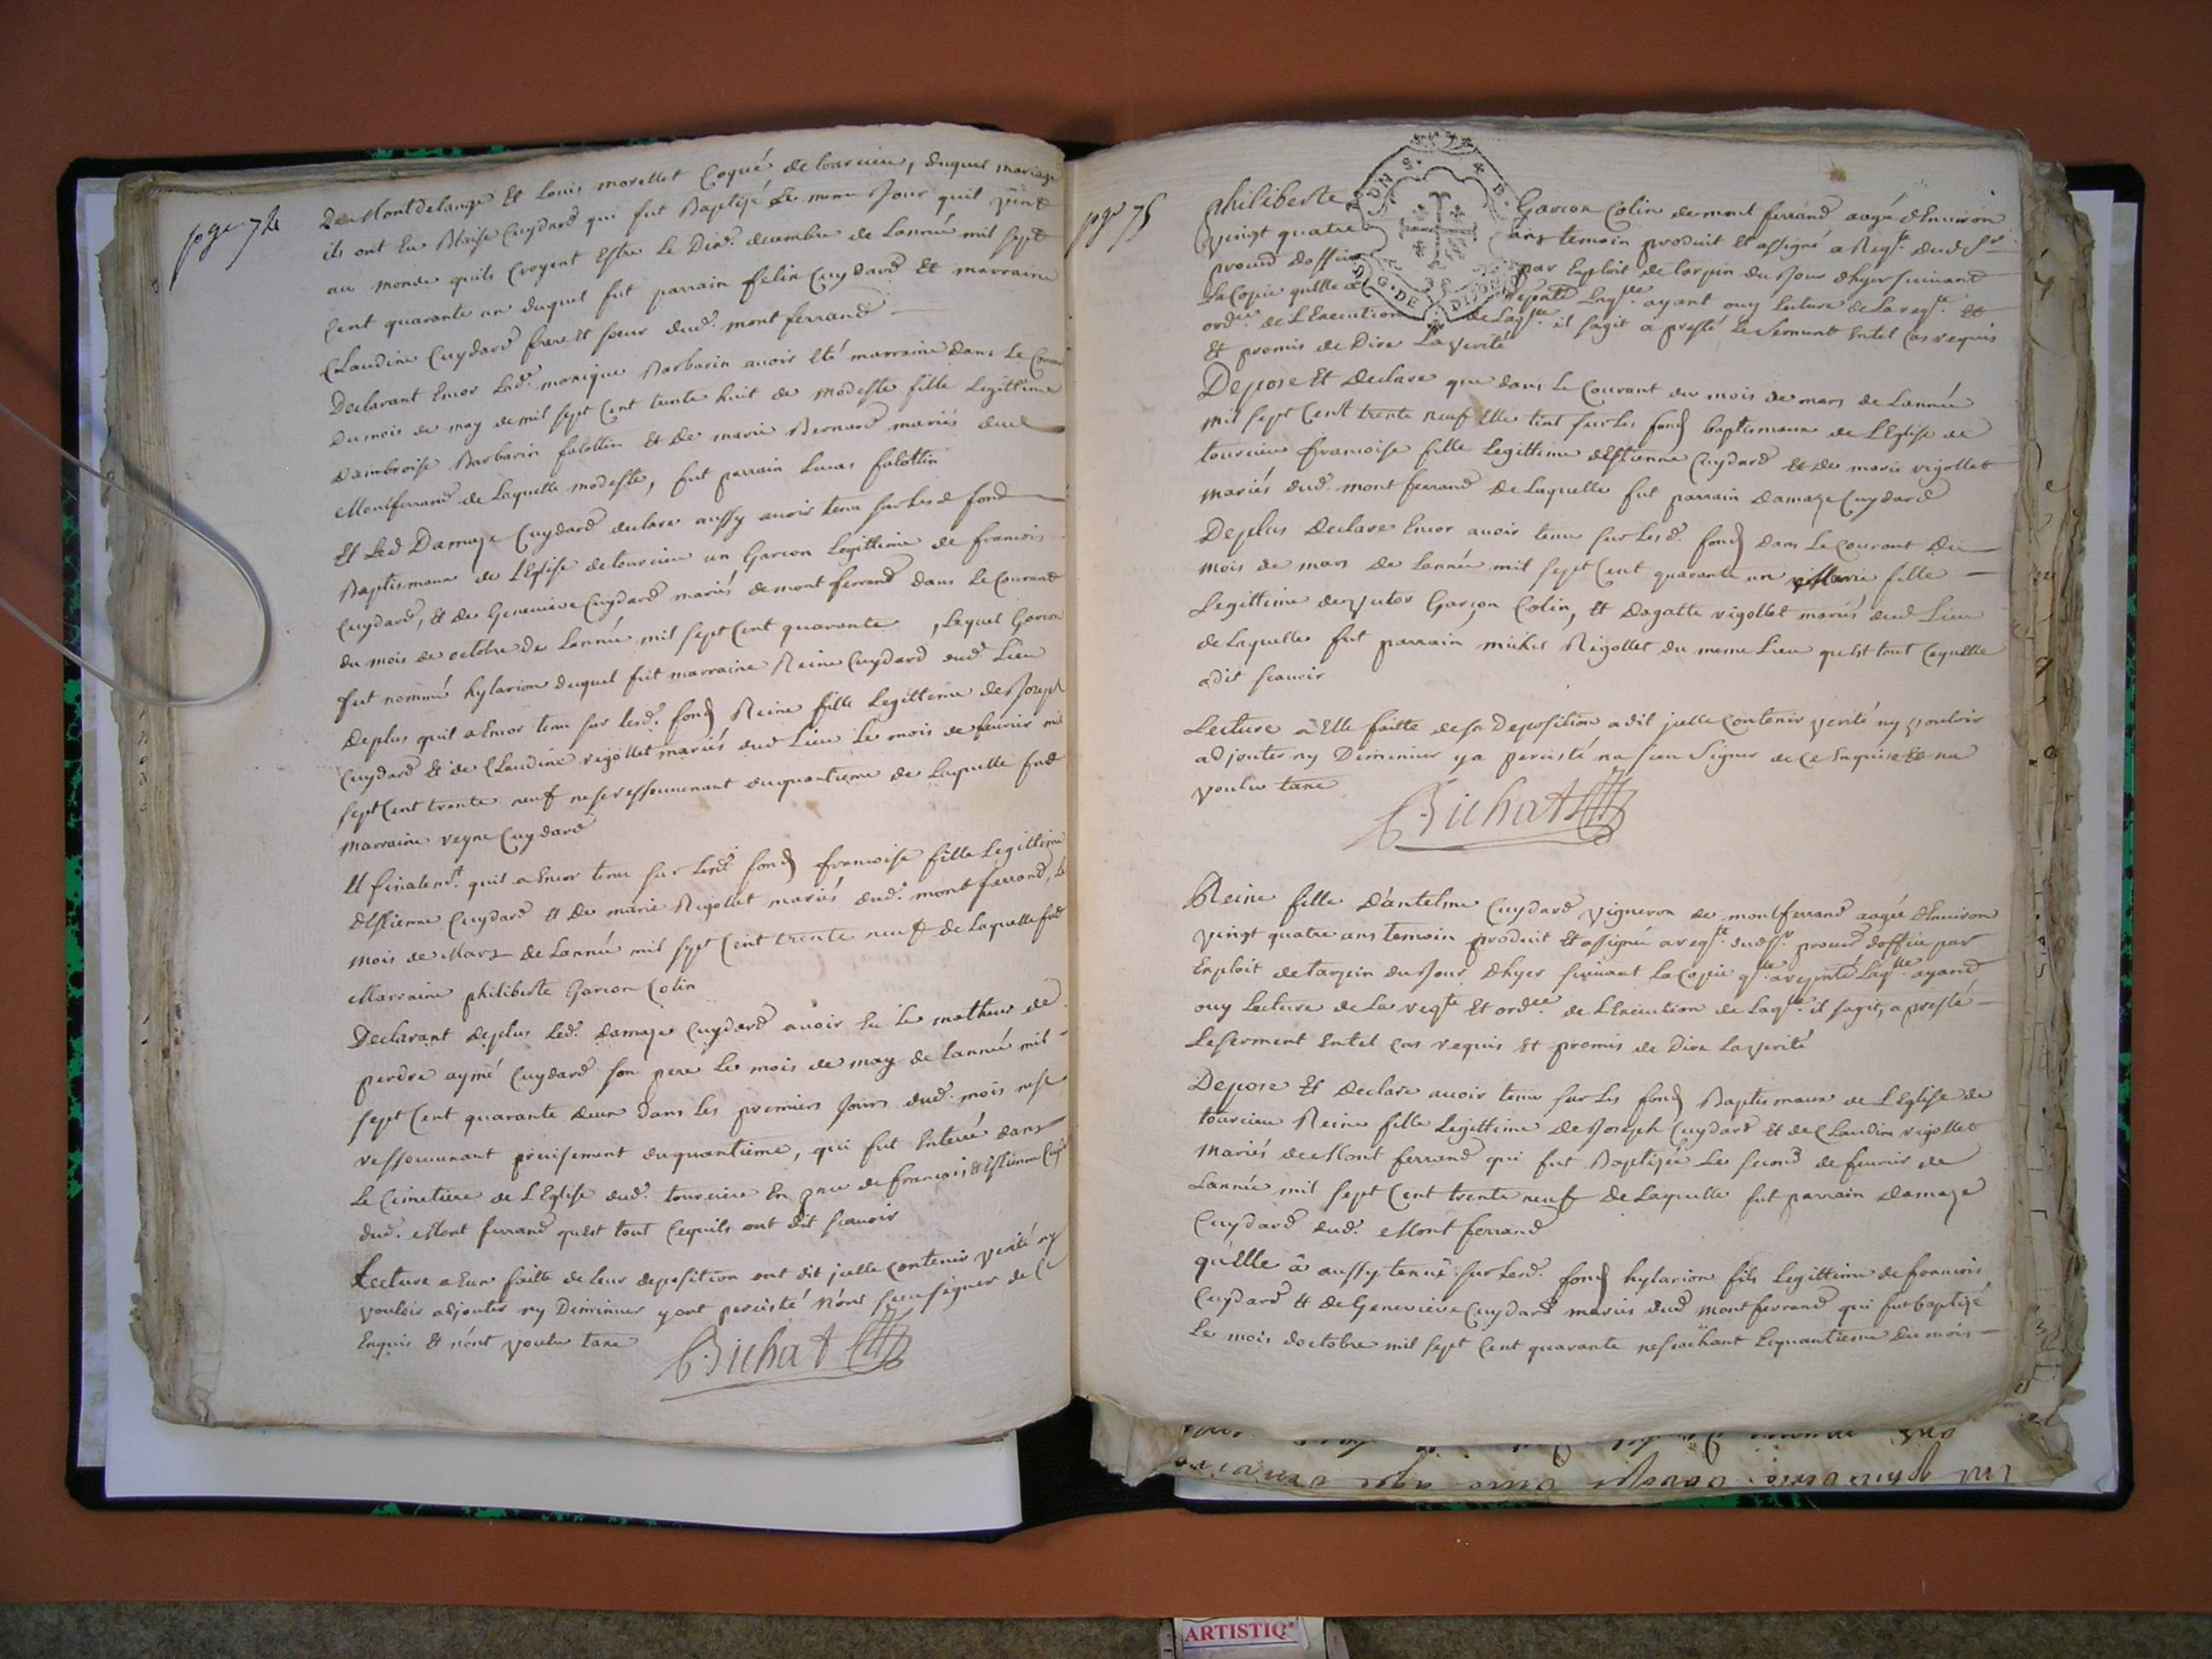 page 74
De Montdelange Et Louis morellet Coqué de torcieu, duquel mariage
ils ont Eu Blaise Cuydard qui fut Baptizé Le meme Jour quil vint
au monde quils Croyent Estre Le Dix.e decembre de Lannée mil sept
Cent quarante un duquel fut parrain felix Cuydard Et marraine
Claudine Cuydard frere Et soeur dud. mont ferrand
Declarant Encor Lad. monique Barbarin avoir Eté marraine dans Le Courant
Du mois de may de mil sept Cent trente huit de Modeste fille Legittime
Dambroise Barbarin falottin Et De marie Bernard mariés dud
Montferrand de Laquelle modeste, fut parrain Lucas falottin
Et Led Damaze Cuydard declare aussy avoir tenu sur Les d fonds
Baptismaux de LEglise de torcieu un Garcon Legittime de francois
Cuydard, Et de Genevieve Cuydard mariés de mont ferrand dans Le Courant
du mois de octobre De Lannée mil sept Cent quarante, Lequel Garcon
fut nommé hylarion duquel fut marraine Reine Cuydard dud. Lieu
De plus quil a Encor tenu sur Lesd. fonds Reine fille Legittime de Joseph
Cuydard Et de Claudine rigollet mariés dud Lieu Le mois de fevrier mil
sept Cent trente neuf ne se ressouvenant du quantieme de Laquelle fut
marraine reyne Cuydard
Et finalem.t quil a Encor tenu sur Lesd. fonds francoise fille Legittime
dEstienne Cuydard Et De marie Rigollet mariés dud. mont ferrand, Le
mois de Mars de Lannée mil sept Cent trente neuf de Laquelle fut
Marraine philiberte Garcon Colin
Declarant deplus Led. Damaze Cuydard avoir Eu Le malheur de
perdre aymé Cuydard son pere Le mois de may de Lannée mil
sept Cent quarante deux dans Les premiers Jours dud. mois ne se
ressouvenant precisement du quantieme, qui fut Enterré dans
Le Cimetiere de LEglise dud. torcieu En pnce de francois Et Estienne Cuyd
dud. Mont ferrand quest tout Cequils ont dit scavoir
Lecture a Eux faitte de Leur deposition ont dit jcelle Contenir verité ny
vouloir adjouter ny Diminuer y ont percisté n'ont sceu signer de Ce
Enquis Et n'ont voulu taxe
Bichat
page 75
philiberte Garcon Colin de mont ferrand aagée dEnviron
vingt quatre ans temoin produit Et assigné a Reqte. dud Sr
procur doffice par Exploit de tarpin du Jour dhyer suivant
La Copie quelle a répnté Laqlle. ayant ouy Lecture de La reqte. Et
ordce. de LExecution de Laqlle. il sagit a presté Le Serment Entel Cas requis
Et promis de Dire La verité
Depose Et Declare que dans Le Courant du mois de mars de Lannée
mil sept Cent trente neuf Elle tint sur Les fonds baptismaux de LEglise de
torcieu francoise fille Legittime dEstienne Cuydard Et de marie rigollet
mariés dud. mont ferrand De Laquelle fut parrain Damaze Cuydard
De plus Declare Encor avoir tenu sur Lesd. fonds dans Le Courant Du
mois de mars De Lannée mil sept Cent quarante un Marie fille
Legittime de victor Garçon Colin, Et dagatte rigollet mariés dud Lieu
de Laquelle fut parrain michel Rigollet du meme Lieu quest tout Cequelle
a dit scavoir
Lecture à Elle faitte de sa Deposition a dit jcelle Contenir verité ny vouloir
adjouter ny Diminuer y a percisté na sceu Signer de Ce Enquise Et na
voulu taxe
Bichat
Reine fille Dantelme Cuydard vigneron de montferrand aagée dEnviron
vingt quatre ans temoin produit Et assignée a reqte. dud Sr. procur doffice par
Exploit de tarpin du Jour dhyer suivant La Copie qlle. a répnté Laqlle. ayand
ouy Lecture de La reqte Et ordce. de LExecution de Laqlle. il sagit, a presté
Le serment Entel Cas requis Et promis de Dire La verité
Depose Et Declare avoir tenu sur Les fonds Baptismaux de LEglise de
torcieu Reine fille Legittime De Joseph Cuydard Et de Claudine rigollet
Mariés de Mont ferrand qui fut Baptizée Le second de fevrier de
Lannée mil sept Cent trente neuf De Laquelle fut parrain Damaze
Cuydard dud. Mont ferrand
qu'Elle à aussy tenuë sur Lesd. fonds hylarion fils Legittime de francois
Cuydard Et de Genevieve Cuydard mariés dud montferrand qui fut baptizé
Le mois doctobre mil sept Cent quarante ne scachant Lequantieme du mois
ARTISTIQ